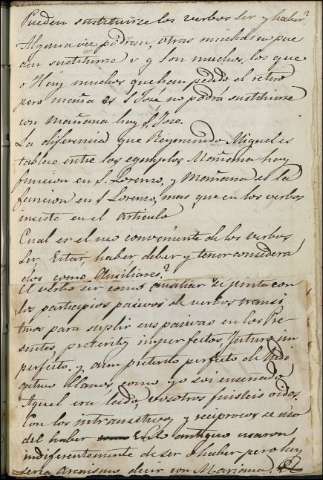 Pueden sustituirse los verbos ser y haber?
Alguna vez podran, otras muchas no pue
den sustituirse y son muchos, los que
Hay muchos que han pedido el retiro
pero mañana es S. José no podrá sustituirse
con Mañana hay S. José.
La diferencia que Raymundo Miguel es
tablece entre los egemplos Mañana hay
funcion en S. Lorenzo, y Mañana es la
funcion en S. Lorenzo, mas que en los verbos
ecsiste en el artículo
Cual es el uso conveniente de los verbos
Ser, Estar, haber, deber y tener considera
dos como Auxiliares?
El verbo ser como auxiliar se junta con
los participios pasivos de verbos transi
tivos para suplir sus pasivas en los Pre
sentes, preterito imperfectos, futuro im
perfecto, y aun preterito perfecto de
como yo soy
Aquel era leido, vosotros fuisteis oidos.
Con los intransitivos y reciprocos se usa
del haber Lo antiguo usaron
indiferentemente de ser o haber pero hoy
seria arcaismo decir con Mariana. El